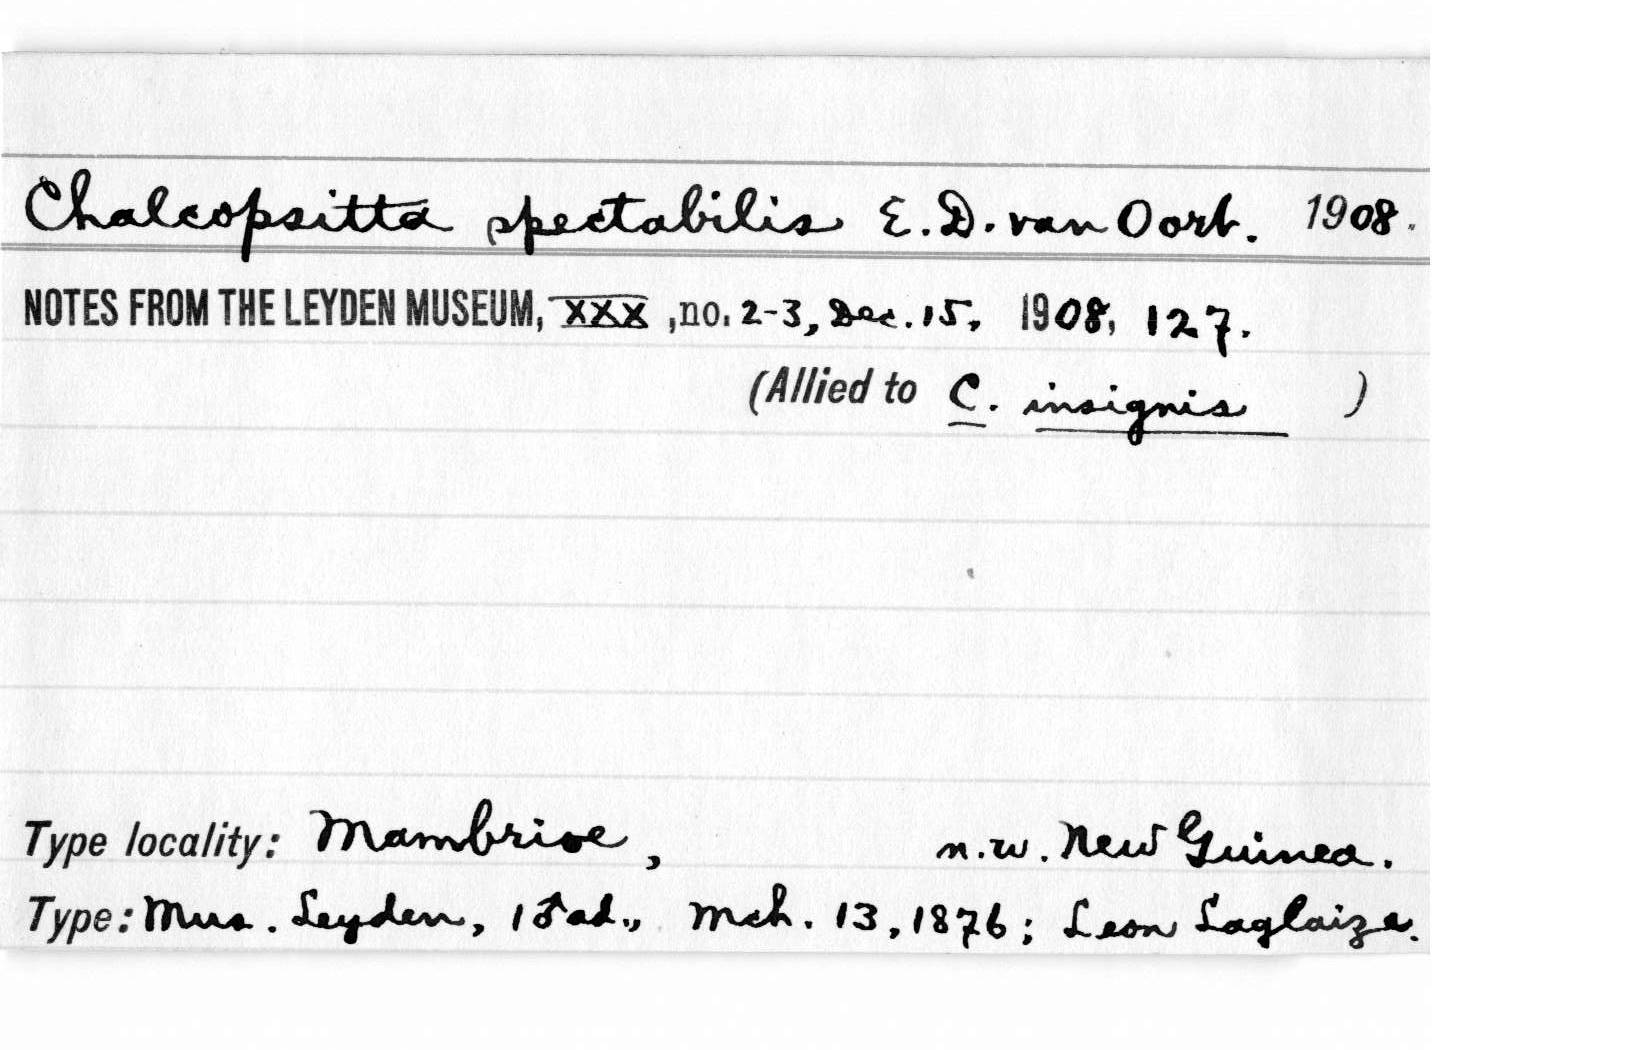 Chalcopsitta spectabilis E.D. van Oort. 1908.
NOTES FROM THE LEYDEN MUSEUM, XXX, no. 2-3, Dec. 15, 1908, 127.
(Allied to C. insignis )
Type locality: Mambrioe, n.w. New Guinea.
Type: Mus. Leyden, 1 ♂ ad., Mch. 13, 1876; Leon Laglaize.